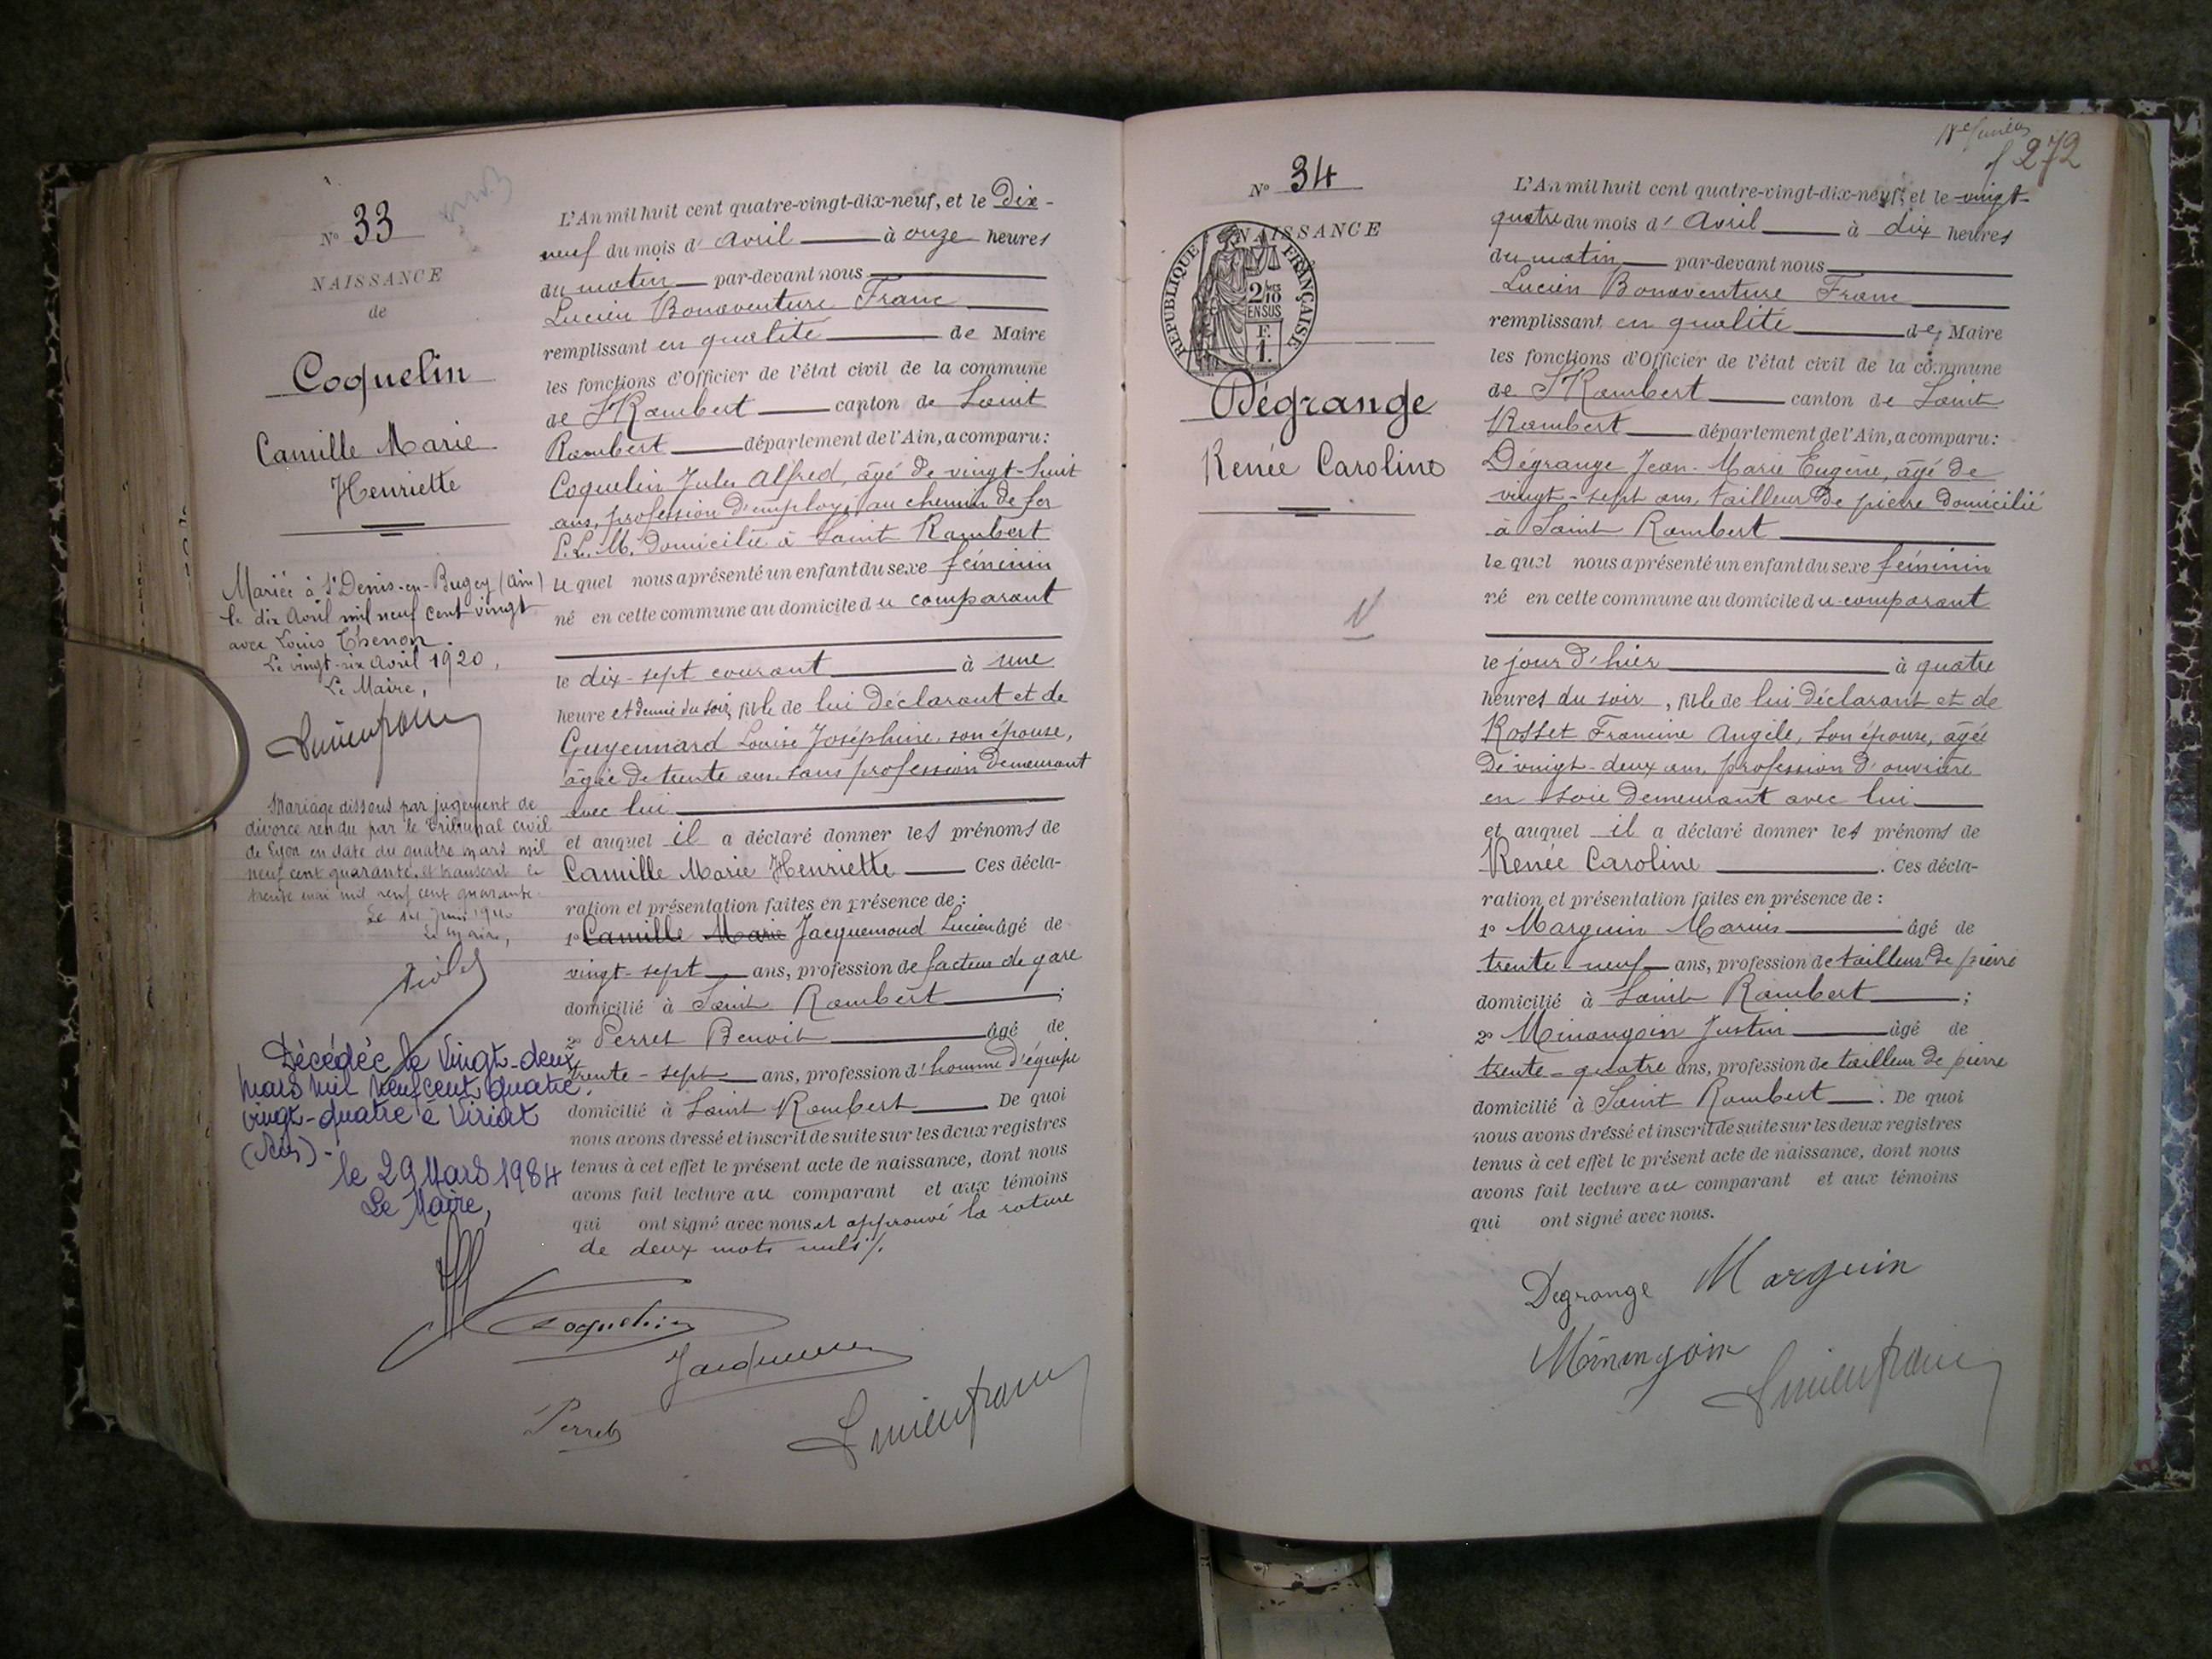 N° 33
NAISSANCE
de
Coquelin
Camille Marie
Henriette
Mariée à St Denis-en-Bugey (Ain)
le dix Avril mil neuf cent vingt
avec Louis Thenon.
Le vingt-six Avril 1920,
Le Maire,
Mariage dissous par jugement de
divorce rendu par le Tribunal civil
de Lyon en date du quatre mars mil
neuf cent quarante, et transcrit le
trente mai mil neuf cent quarante.
Le 14 juin 1940
Le Maire,
Décédée le Vingt-deux
mars mil neuf cent quatre.
vingt-quatre à Viriat
(Ain).
le 29 Mars 1984
Le Maire,
L'An mil huit cent quatre-vingt-dix-neuf, et le Dix-
neuf du mois d'Avril à onze heures
du matin par-devant nous
Lucien Bonaventure Franc
remplissant en qualité de Maire
les fonctions d'Officier de l'état civil de la commune
de St Rambert canton de Saint
Rambert département de l'Ain, a comparu:
Coquelin Jules Alfred, âgé de vingt-huit
ans, profession d'employé au chemin de fer
P.L.M. domicilié à Saint Rambert
le quel nous a présenté un enfant du sexe féminin
né en cette commune au domicile du comparant
le dix-sept courant à une
heure et demie du soir, fille de lui déclarant et de
Guyennard Louise Joséphine, son épouse,
âgée de trente ans sans profession demeurant
avec lui
et auquel il a déclaré donner les prénoms de
Camille Marie Henriette Ces décla-
ration et présentation faites en présence de :
1° Camille Marie Jacquemoud Lucien âgé de
vingt-sept ans, profession de facteur de gare
domicilié à Saint Rambert ;
2° Perret Benoit âgé de
trente-sept ans, profession d'homme d'équipe
domicilié à Saint Rambert De quoi
nous avons dressé et inscrit de suite sur les deux registres
tenus à cet effet le présent acte de naissance, dont nous
avons fait lecture au comparant et aux témoins
qui ont signé avec nous et approuvé la rature
de deux mots nuls ./.
Coquelin
Perret
Lucien franc
272
N° 34
NAISSANCE
REPUBLIQUE FRANÇAISE
2/10 MES
EN SUS
F.
1.
Dégrange
Renée Caroline
L'An mil huit cent quatre-vingt-dix-neuf, et le vingt-
quatre du mois d'Avril à dix heures
du matin par-devant nous
Lucien Bonaventure Franc
remplissant en qualité de Maire
les fonctions d'Officier de l'état civil de la commune
de St Rambert canton de Saint
Rambert département de l'Ain, a comparu:
Dégrange Jean-Marie Eugène, âgé de
vingt-sept ans, tailleur de pierre domicilié
à Saint Rambert
le quel nous a présenté un enfant du sexe féminin
né en cette commune au domicile du comparant
le jour d'hier à quatre
heures du soir, fille de lui déclarant et de
Rosset Francine Angèle, son épouse, âgée
de vingt-deux ans, profession d'ouvrière
en soie demeurant avec lui
et auquel il a déclaré donner les prénoms de
Renée Caroline . Ces décla-
ration et présentation faites en présence de :
1° Marguin Marius âgé de
trente-neuf ans, profession de tailleur de pierre
domicilié à Saint Rambert ;
2° Minangoin Justin âgé de
trente-quatre ans, profession de tailleur de pierre
domicilié à Saint Rambert . De quoi
nous avons dressé et inscrit de suite sur les deux registres
tenus à cet effet le présent acte de naissance, dont nous
avons fait lecture au comparant et aux témoins
qui ont signé avec nous.
Degrange Marguin
Minangoin Lucien franc